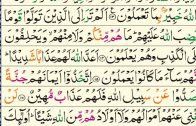 خَبِيرٌۢ بِمَا تَعْمَلُوْنَ ۝ اَلَمْ تَرَ اِلَى الَّذِيْنَ تَوَلَّوْا قَوْمًا
غَضِبَ اللّٰهُ عَلَيْهِمْ مَا هُمْ مِّنْكُمْ وَلَا مِنْهُمْ وَيَحْلِفُوْنَ
عَلَى الْكَذِبِ وَهُمْ يَعْلَمُوْنَ ۝ اَعَدَّ اللّٰهُ لَهُمْ عَذَابًا شَدِيْدًا
اِنَّهُمْ سَآءَ مَا كَانُوْا يَعْمَلُوْنَ ۝ اِتَّخَذُوْٓا اَيْمَانَهُمْ جُنَّةً
فَصَدُّوْا عَنْ سَبِيْلِ اللّٰهِ فَلَهُمْ عَذَابٌ مُّهِيْنٌ ۝ لَنْ
تُغْنِيَ عَنْهُمْ اَمْوَالُهُمْ وَلَآ اَوْلَادُهُمْ مِّنَ اللّٰهِ شَيْـًٔا اُولٰٓئِكَ